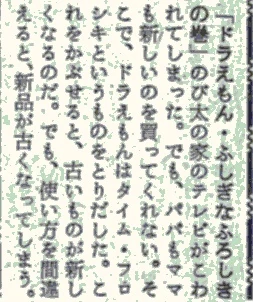 『ドラえもん・ふしぎなふろしき
の巻』のび太の家のテレビがこわ
れてしまった。でも、パパもママ
も新しいのを買ってくれない。そ
こで、ドラえもんはタイム・フロ
シキというものをとりだした。こ
れをかぶせると、古いものが新し
くなるのだ。でも、使い方を間違
えると、新品が古くなってしまう。